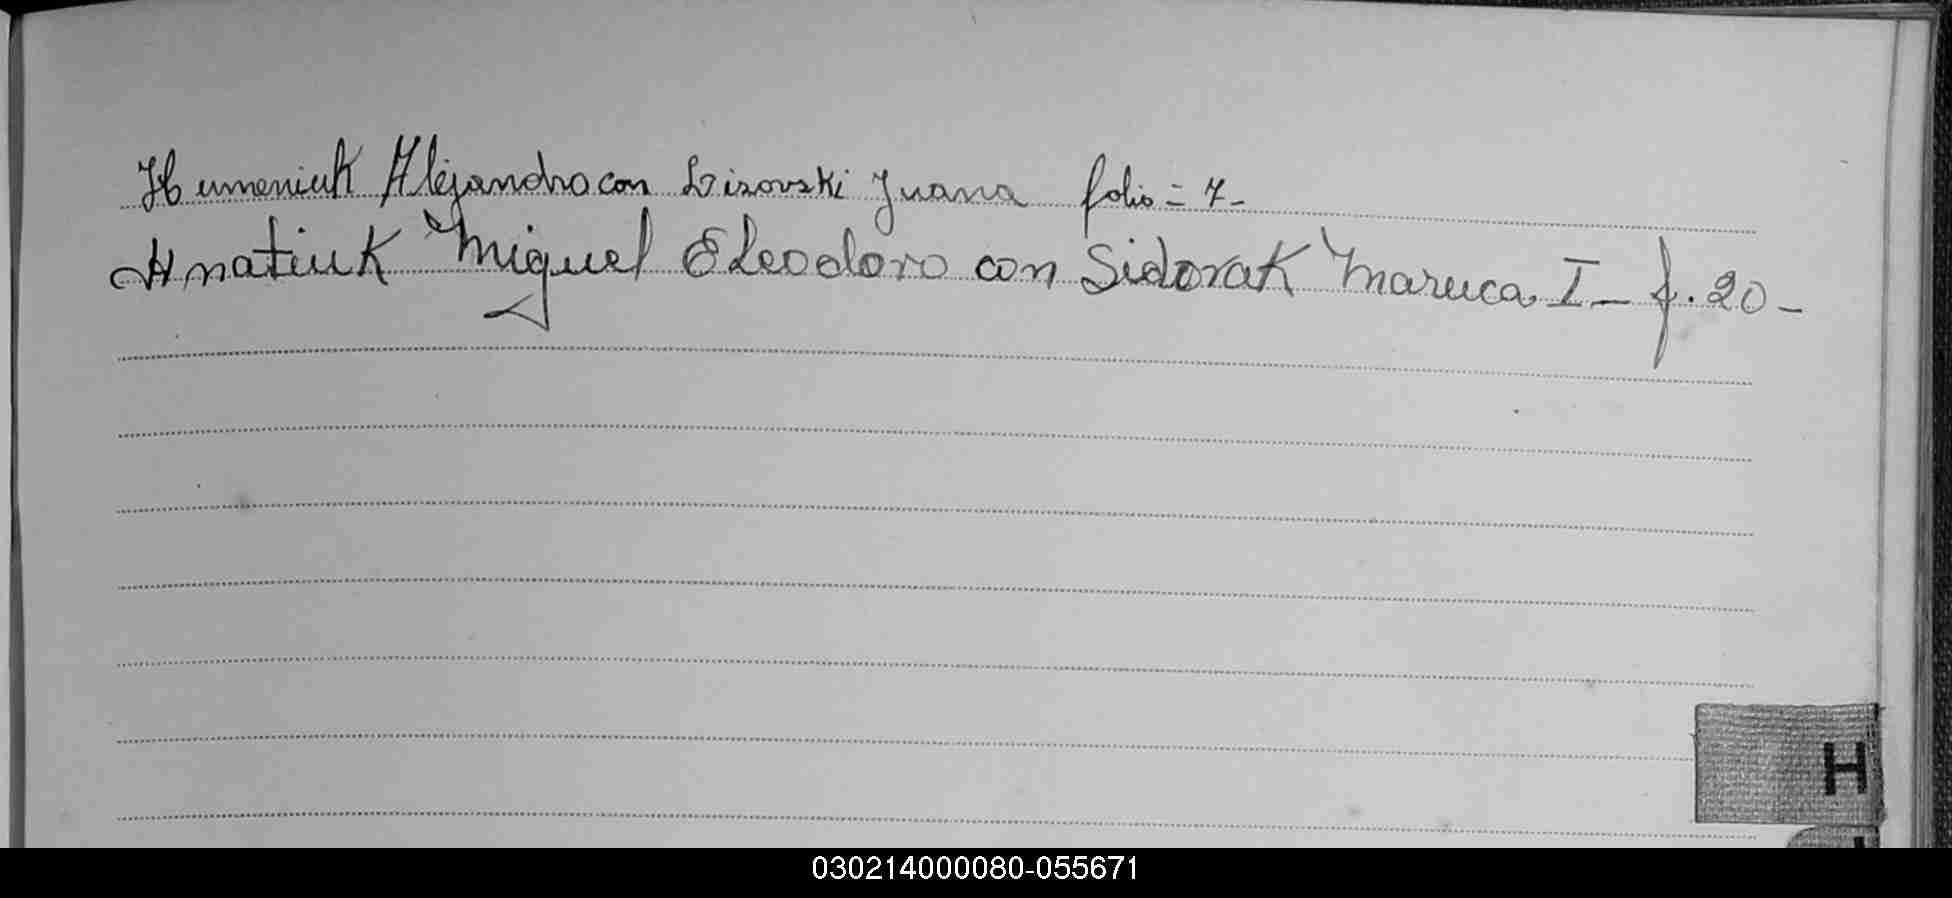 Humeniuk Alejandro con Lisovski Juana folio = 7 -
Hnatiuk Miguel Eleodoro con Sidorak Maruca I - f. 20 -
H
030214000080-055671